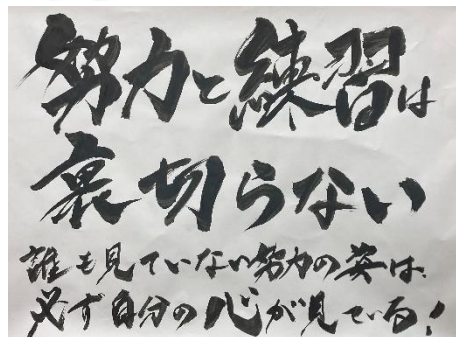 努力と練習は
裏切らない
誰も見ていない努力の姿は、
必ず自分の心が見ている！